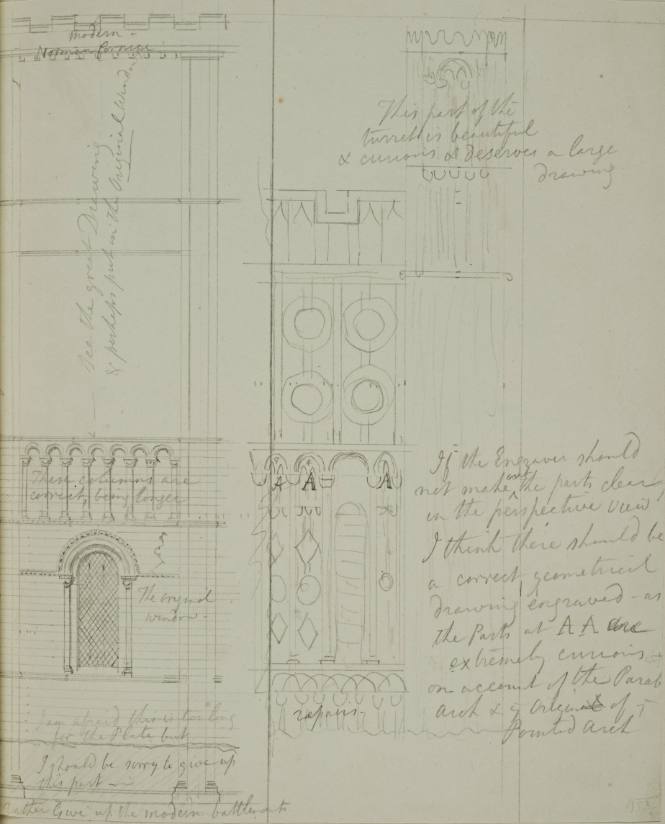 modern -
Norman
See the great Drawing
& perhaps put in the Original Window
This part of the
turret is beautiful
& curious & deserves a large
drawing
These columns are
correct, being longer
The original
window -
A A A
If the Engraver should
not make out the parts clear
in the perspective view
I think there should be
a correct geometrical
drawing engraved - as
the Parts at AA are
extremely curious -
on account of the
arch & of Origin of
Pointed Arch
repairs -
I am afraid this is too long
for the Plate but
I should be sorry to give up
this part -
Rather Give up the modern battlements